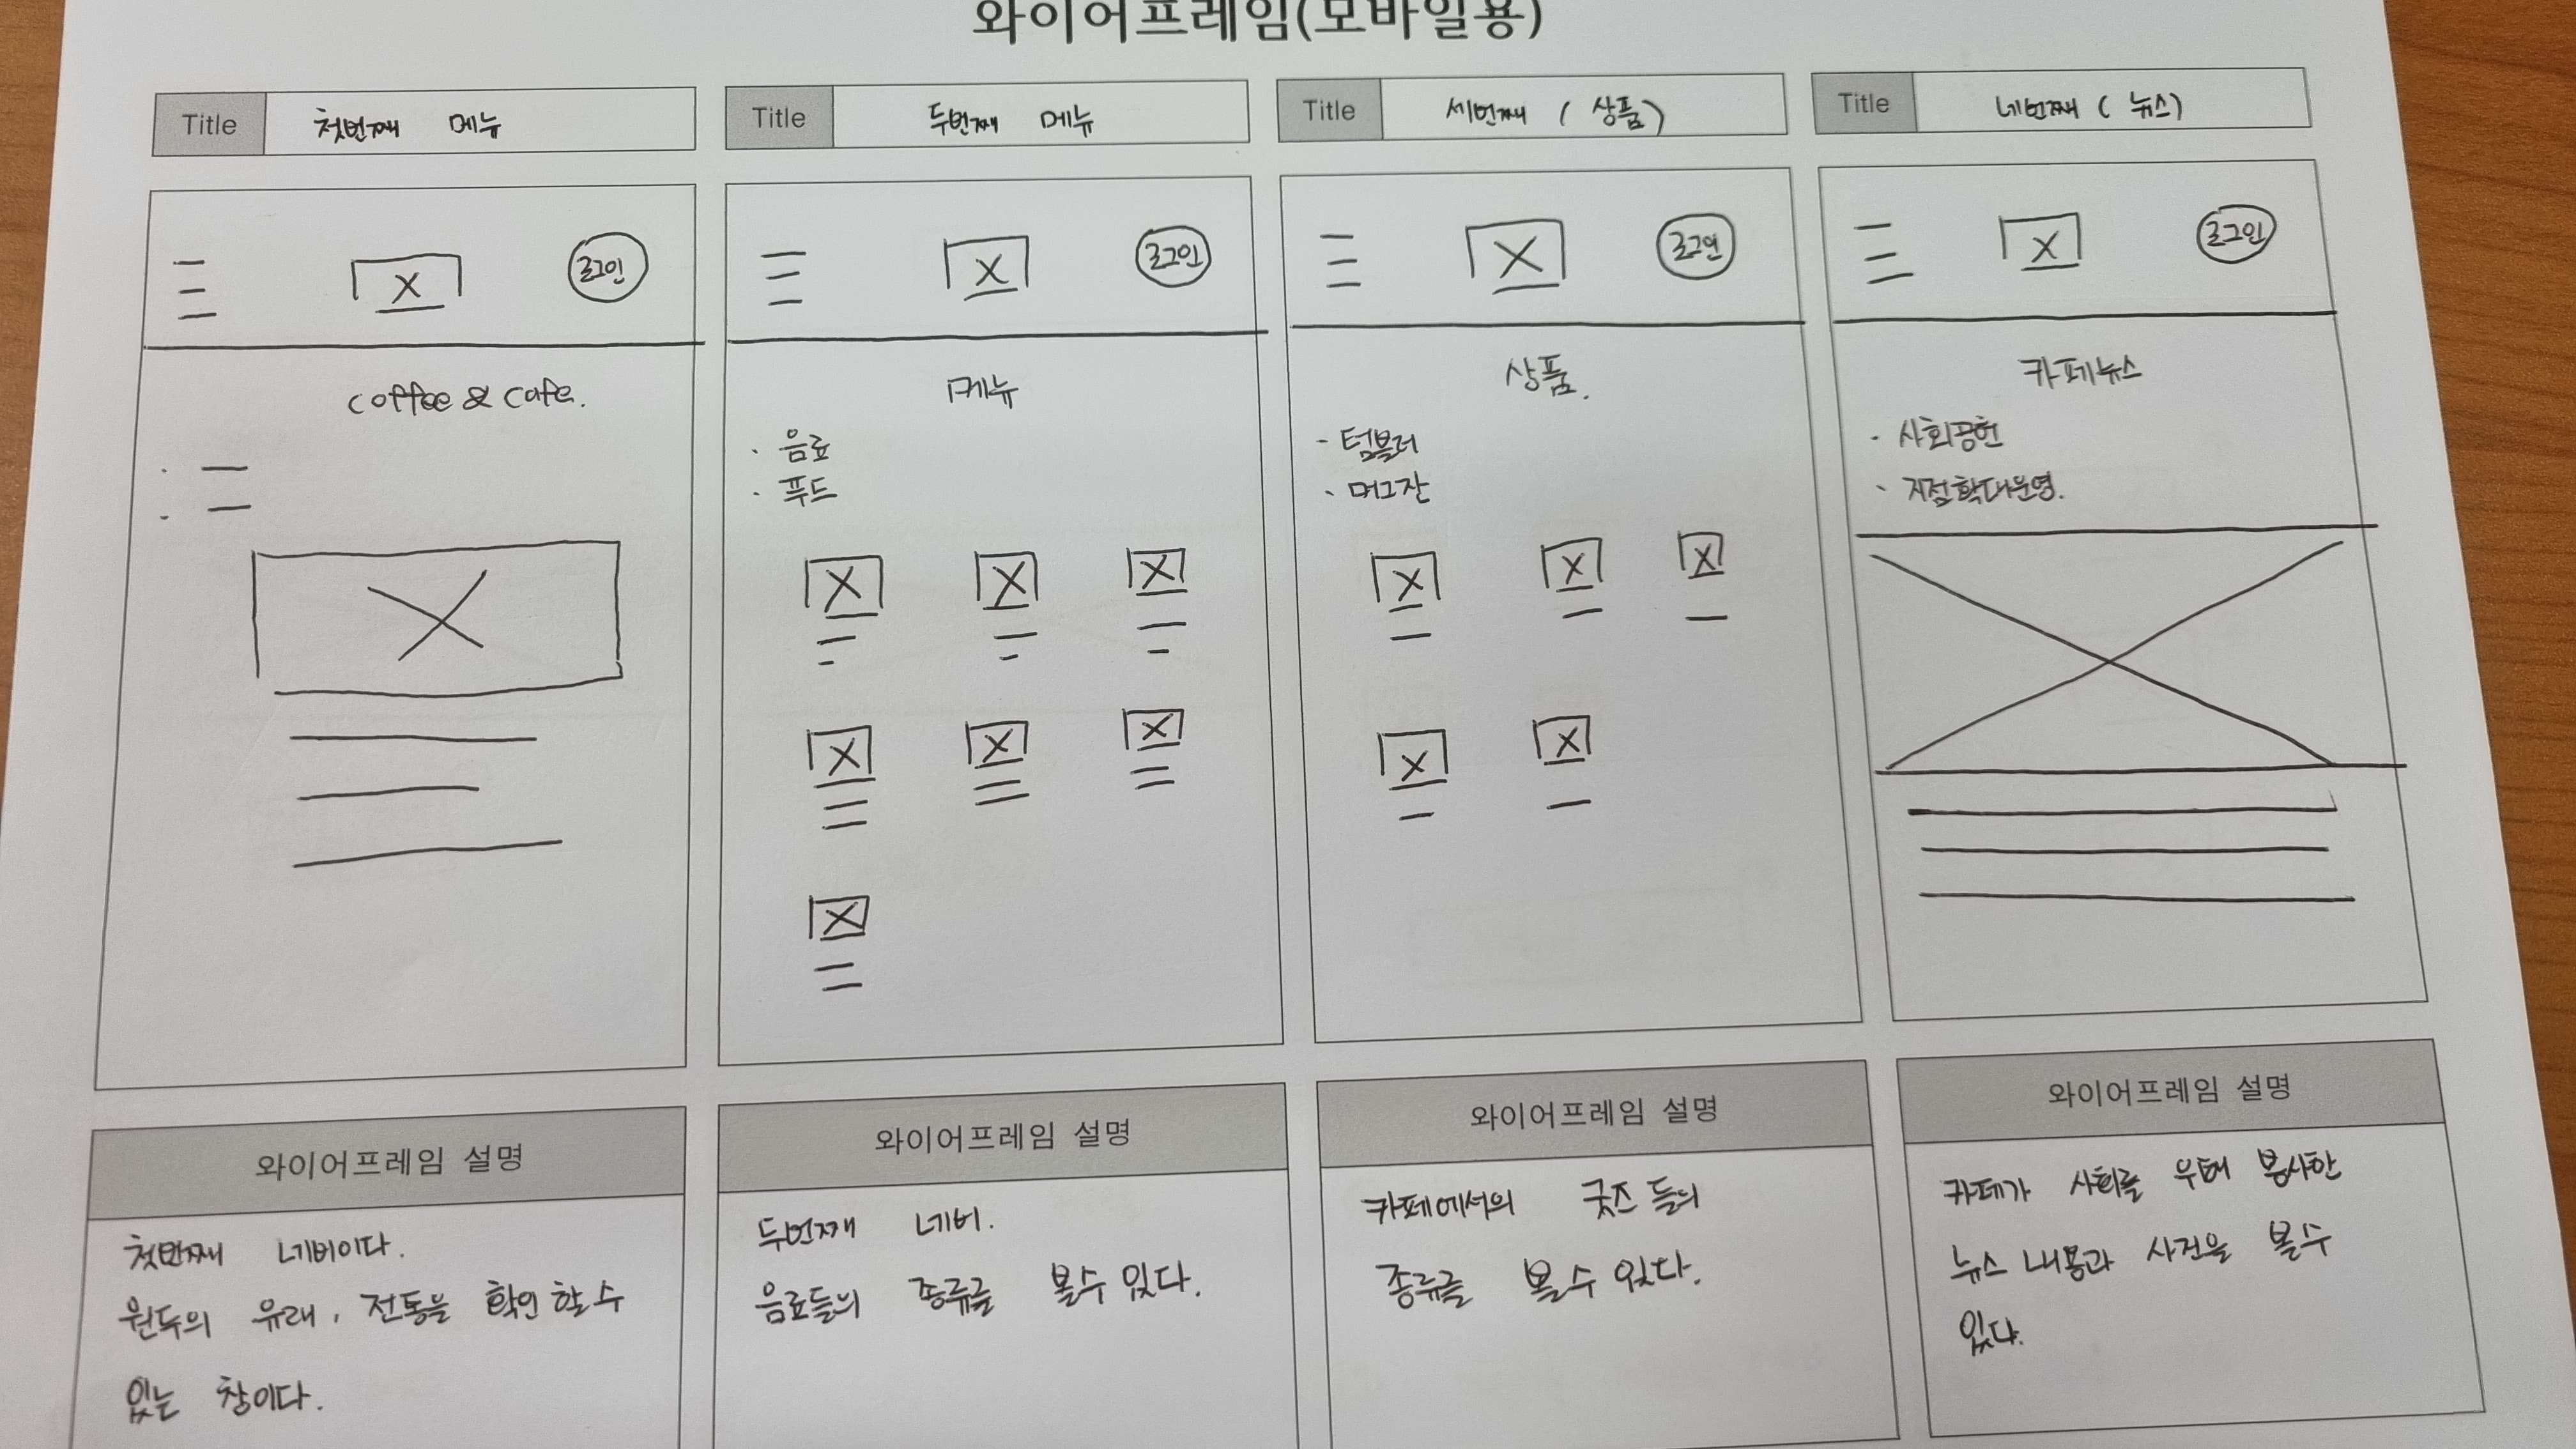 와이어프레임(모바일용)
Title 첫번째 메뉴
로그인
coffee & cafe.
와이어프레임 설명
첫번째 네비이다.
원두의 유래, 전통을 확인 할 수
있는 창이다.
Title 두번째 메뉴
로그인
메뉴
· 음료
· 푸드
와이어프레임 설명
두번째 네비.
음료들의 종류를 볼수 있다.
Title 세번째 ( 상품)
로그인
상품.
- 텀블러
- 머그잔
와이어프레임 설명
카페에서의 굿즈 들의
종류를 볼 수 있다.
Title 네번째 ( 뉴스)
로그인
카페뉴스
· 사회공헌
· 지점확대운영.
와이어프레임 설명
카페가 사회를 위해 봉사한
뉴스 내용과 사진을 볼수
있다.